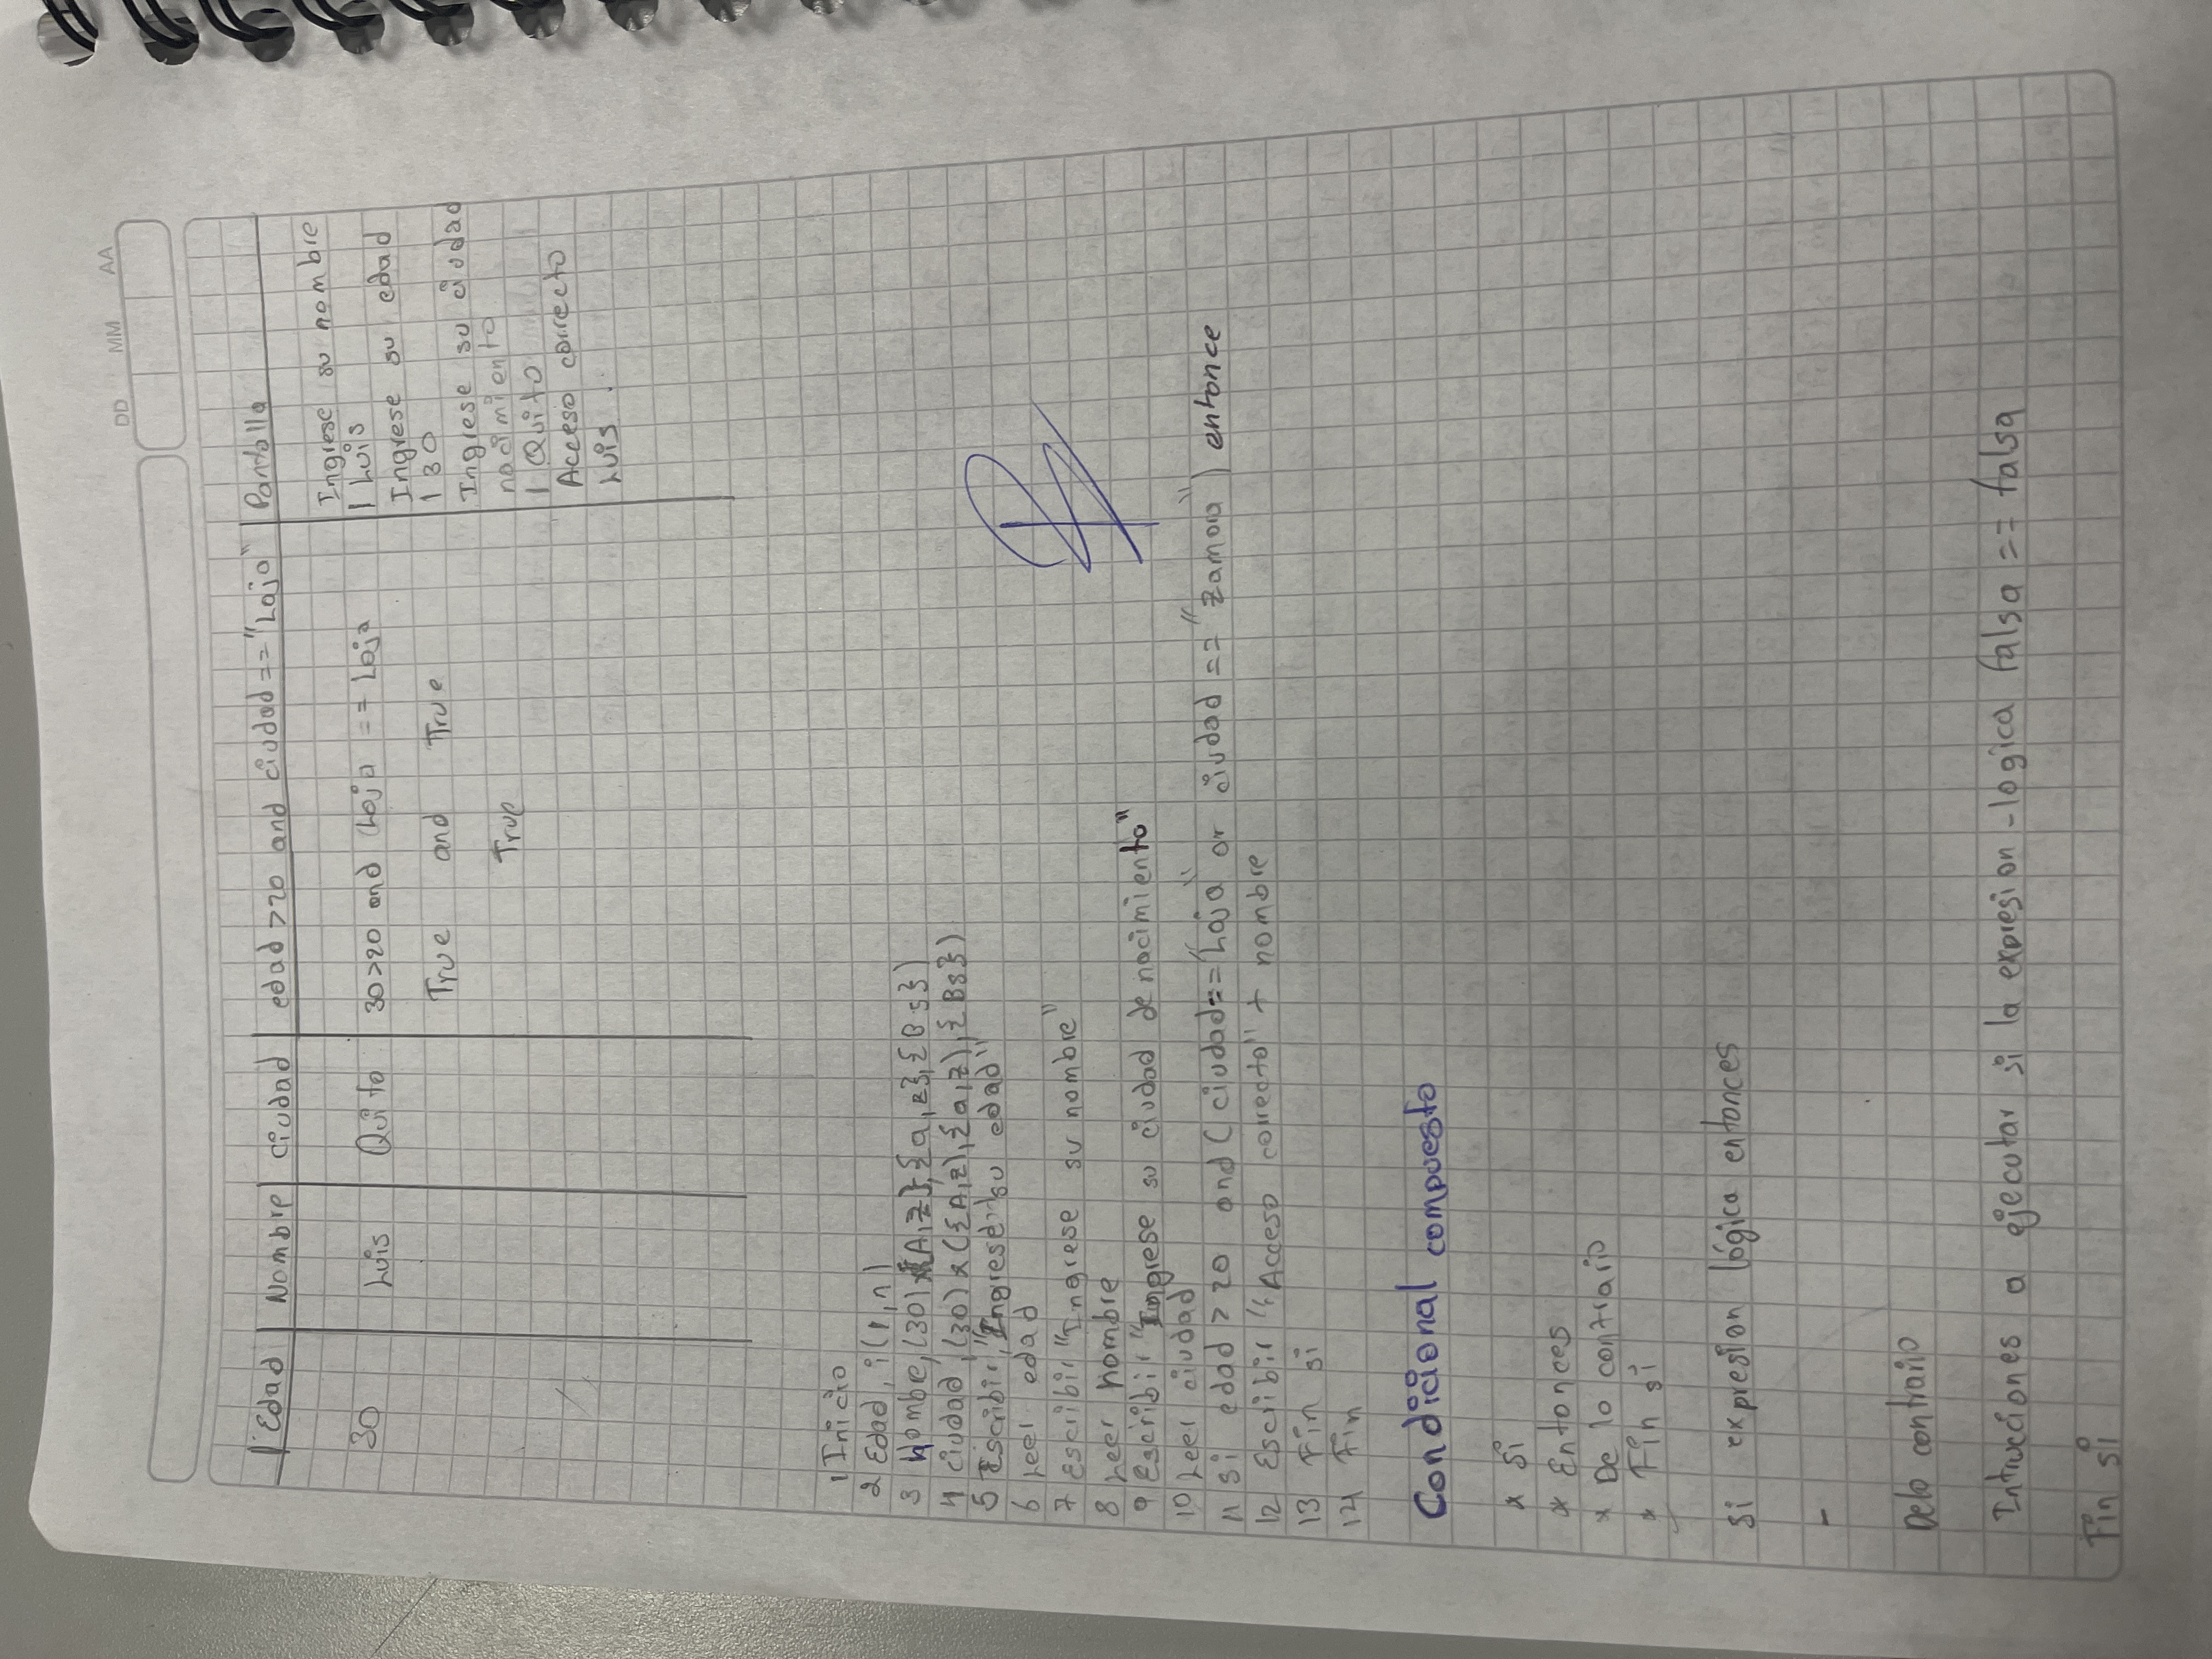 DD MM AA
Edad | Nombre | Ciudad | edad >20 and ciudad == "Loja" | Pantalla
Ingrese su nombre
30 Luis Quito 30>20 and Loja == Loja | Luis
Ingrese su edad
True and True | 30
Ingrese su ciudad
True nacimiento
| Quito
Acceso correcto
Luis
1 Inicio
2 Edad, i(1,n)
3 Nombre, (30) x {A,z}, {a,z}, {Bs})
4 ciudad, (30) x ({A,z), {a,z), {Bs})
5 Escribir, "Ingrese su edad"
6 Leer edad
7 Escribir "Ingrese su nombre"
8 Leer nombre
9 Escribir "Ingrese su ciudad de nacimiento"
10 Leer ciudad
11 Si edad > 20 and ( ciudad == "Loja" or ciudad == "Zamora") entonce
12 Escribir "Acceso correcto" + nombre
13 Fin si
14 Fin
Condicional compuesto
* Si
* Entonces
* De lo contrario
* Fin si
Si expresion lógica entonces
-
Delo contrario
Intrucciones a ejecutar si la expresion -logica falsa == falsa
Fin si